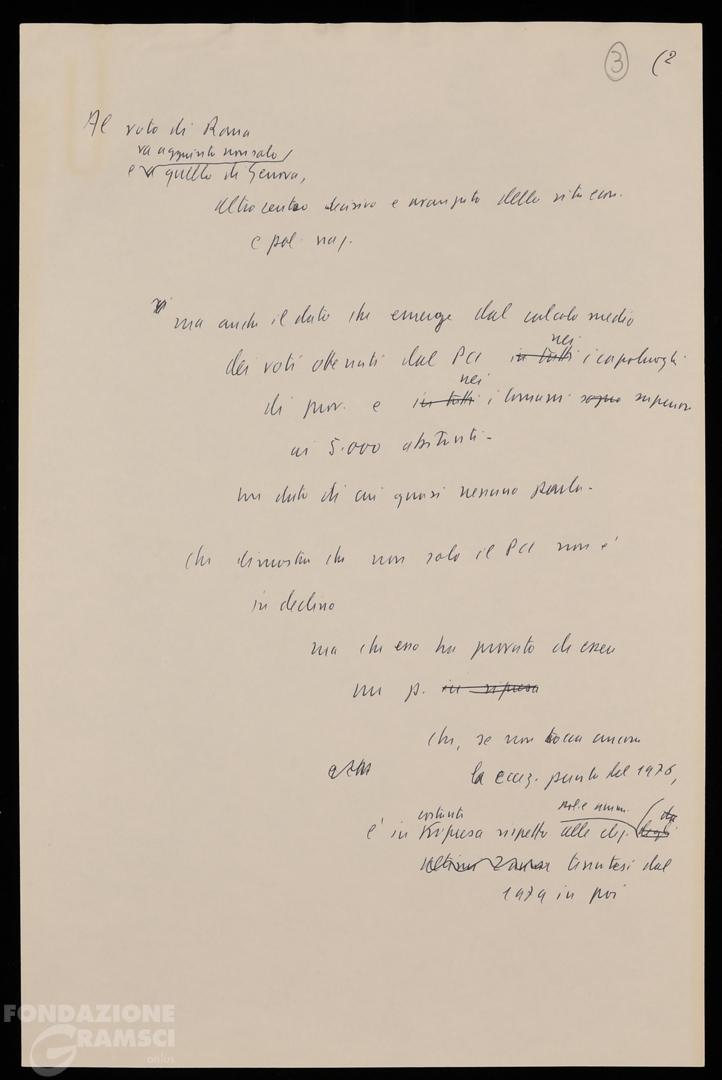 3 (2
Al voto di Roma
va aggiunto non solo
e va quello di Genova,
altro centro decisivo e avanzato della vita econ.
e pol. naz.
ma anche il dato che emerge dal calcolo medio
nei
dei voti ottenuti dal PCI in tutti i capoluoghi
nei
di prov. e in tutti i Comuni superiori
ai 5.000 abitanti -
un dato di cui quasi nessuno parla -
che dimostra che non solo il PCI non è
in declino
ma che esso ha provato di essere
un p. in ripresa
che, se non tocca ancora
la eccez. punta del 1976,
costante
è in ripresa rispetto alle
tenutesi dal
1979 in poi
FONDAZIONE
GRAMSCI
onlus